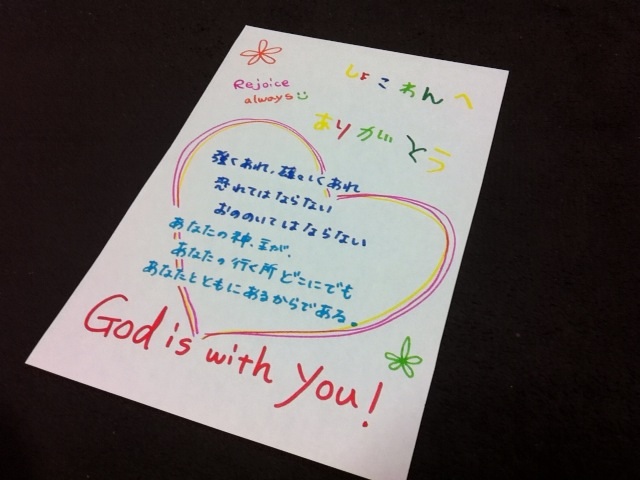 しょこわんへ
Rejoice
always
ありがとう
強くあれ、雄々しくあれ
恐れてはならない
おののいてはならない
あなたの神、主が、
あなたの行く所どこにでも
あなたとともにあるからである。
God is with you!